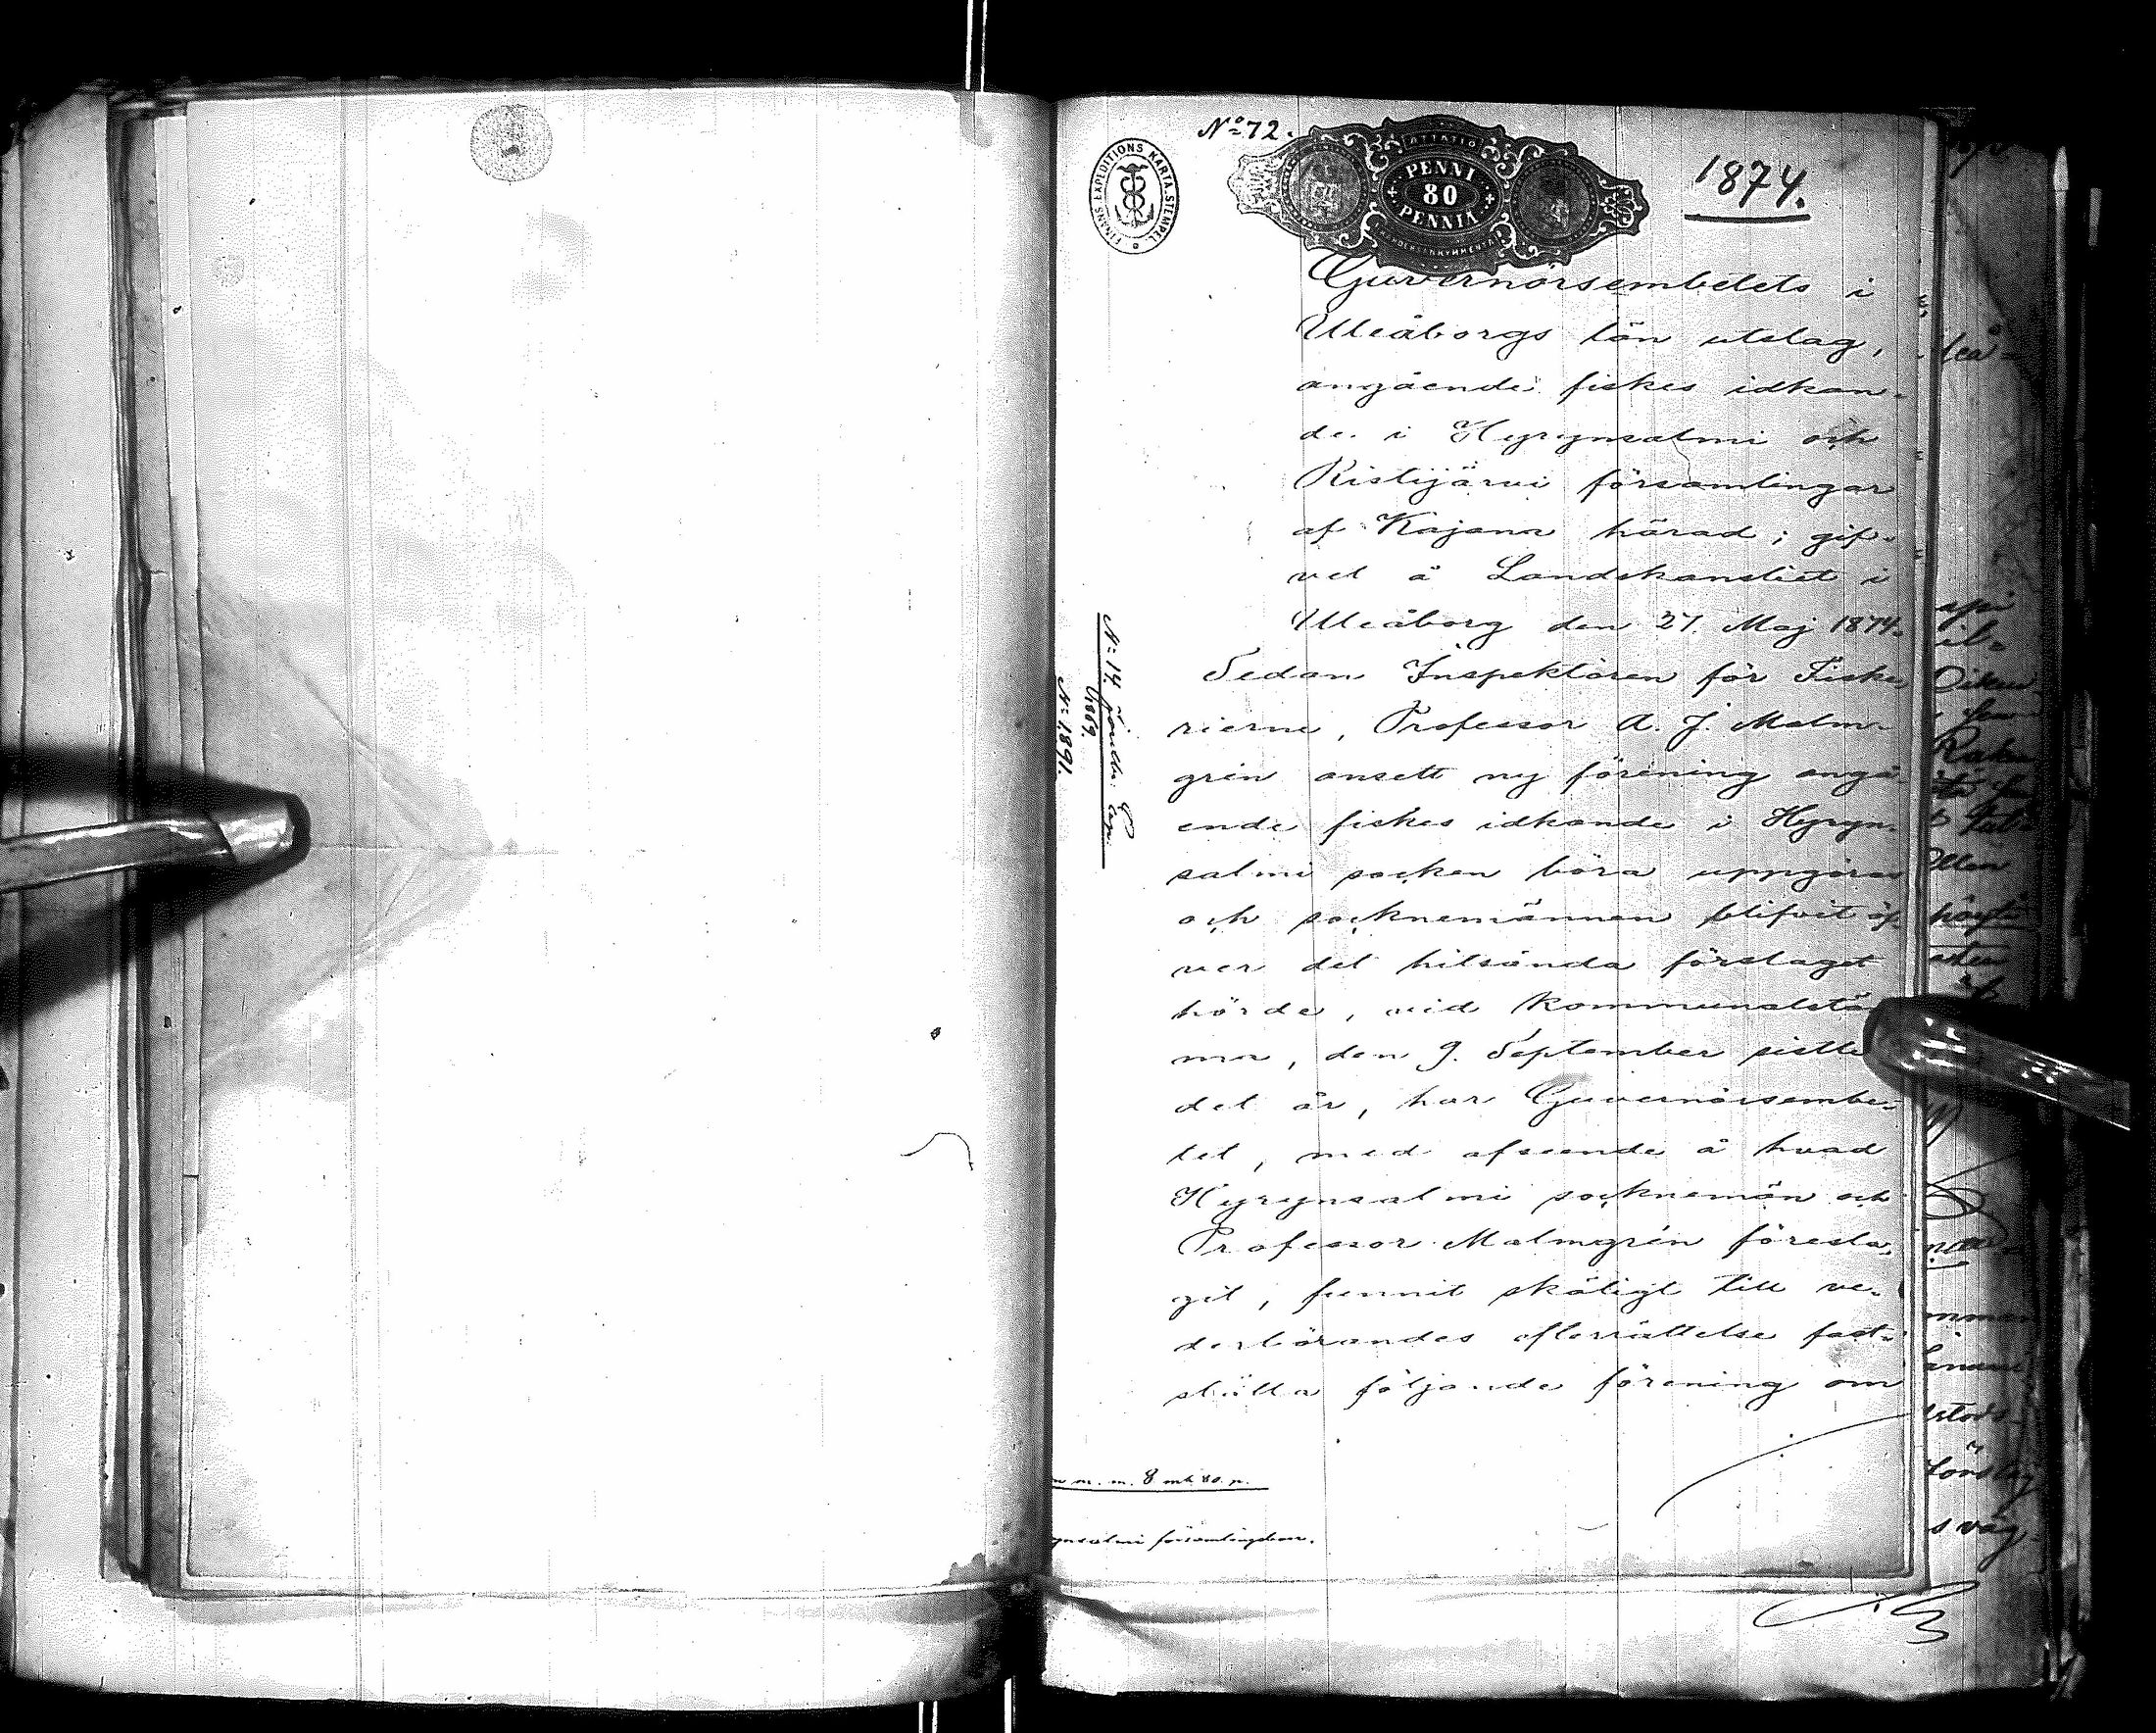 No 72.
FINANS EXPEDITIONS KARTA. STEMPEL
PENNI
80
PENNIÄ
1874.
Guvernörsembetets i
Uleåborgs län utslag,
angående fiskes idkan-
de i Hyrynsalmi och
Ristijärvi församlingar
af Kajana härad; gif-
vet å Landskansliet i
Uleåborg den 27. Maj 1874.
Sedan Inspektören för Fiske-
rierne, Professor A. J. Malm-
grén ansett ny förening angå-
ende fiskes idkande i Hyryn-
salmi socken böra uppgöras
och socknemännen blifvit öf-
ver det tillsända förslaget
hörde, vid Kommunalstä
ma, den 9. September sistle
det år, har Guvernörsembe-
tet, med afseende å hvad
Hyrynsalmi socknemän och
Professor Malmgrén föresla-
git, funnit skäligt till ve-
derbörandes efterrättelse fast-
ställa följande förening om
No 14
1869.
No 1891.
m. m. 8 mk 80. p.
ynsalmi församlingsbor.